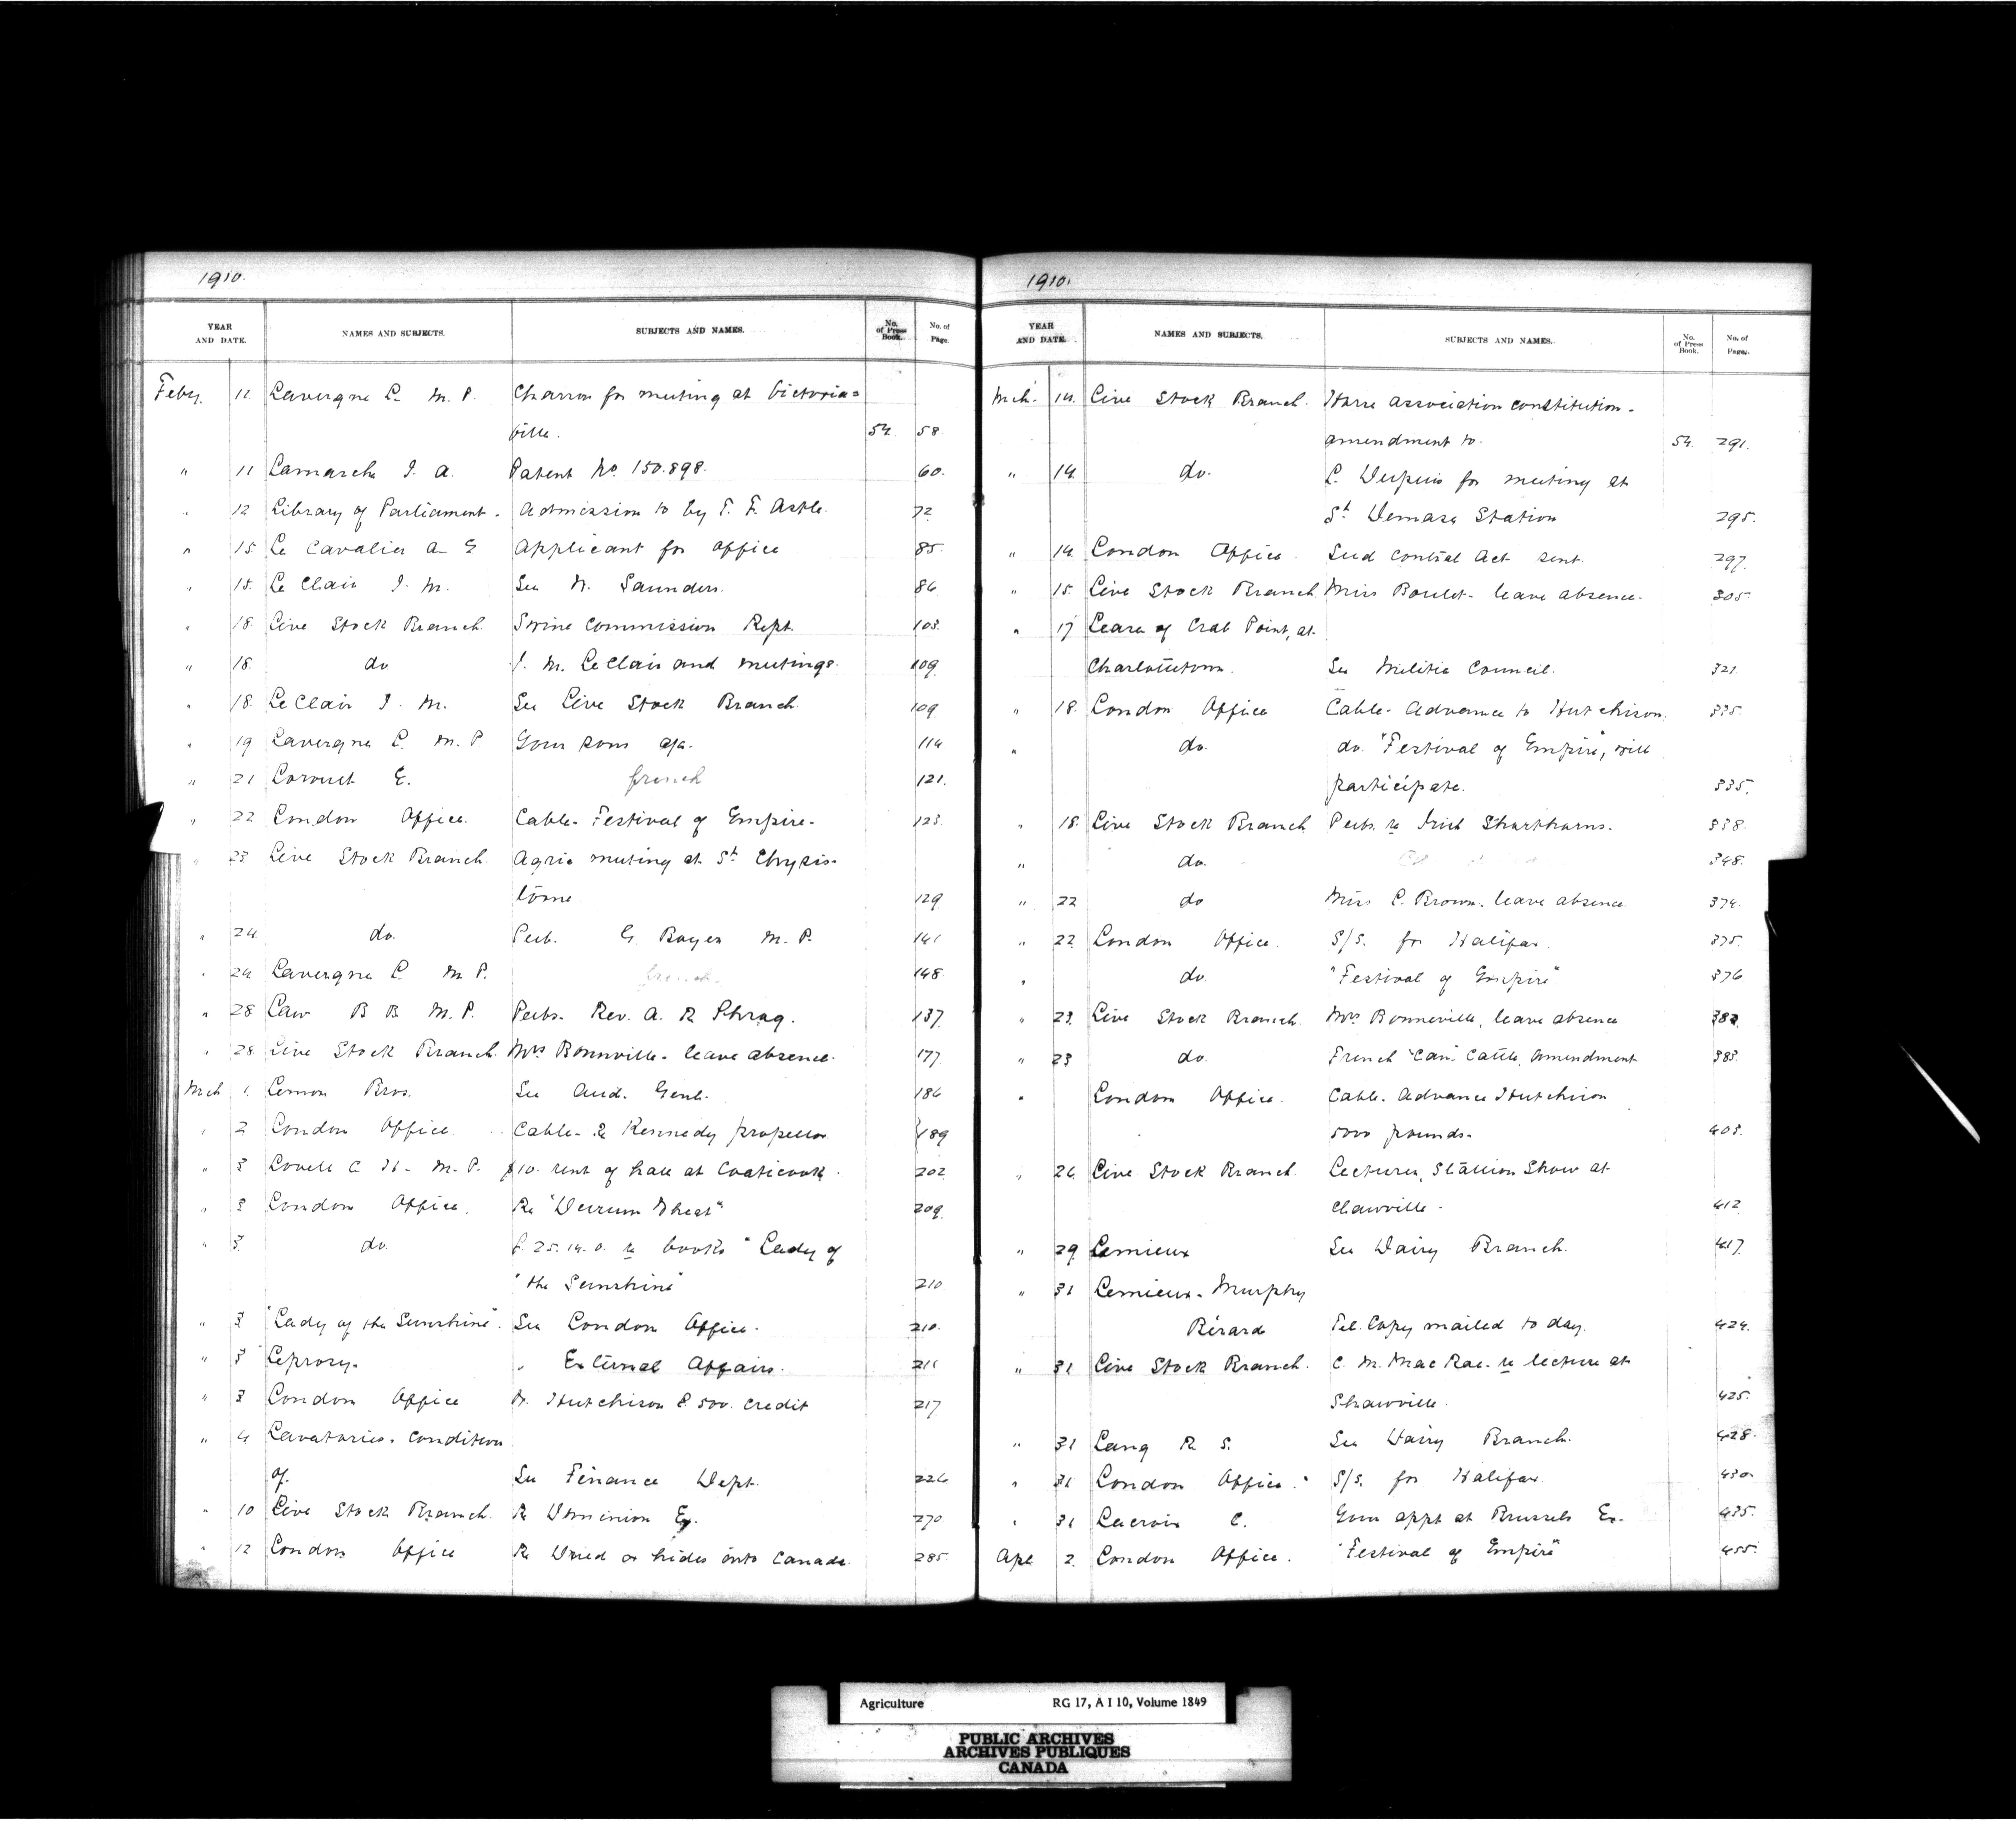 1910.
YEAR AND DATE. NAMES AND SUBJECTS. SUBJECTS AND NAMES. No. of Press Book. No. of Page.
Feby. 11 Lavergne L. M. P. Charron for meeting at Victoria=
ville. 54 58
" 11 Lamarche J. A. Patent No 150.898. 60.
" 12 Library of Parliament - Admission to by T. F. Astle. 72
" 15 Le Cavalier A- E Applicant for office 85.
" 15. Le Clair J. M. See W. Saunders. 86
" 18 Live Stock Branch. Swine Commission Rept. 103.
" 18. do J. M. LeClair and meetings. 109.
" 18. LeClair J. M. See Live Stock Branch. 109
" 19 Lavergne L. M. P. Your sons a/c. 114
" 21 E. french 121.
" 22 London Office. Cable- Festival of Empire- 123.
" 23 Live Stock Branch. Agric meeting at St Chrysis-
tôme 129
" 24 do. Pub. G. Boyer M. P. 141
" 24 Lavergne L. M P. french. 148
" 28 Law B B M. P. Pubs. Rev. A. R 137.
" 28 Live Stock Branch. Mrs Bonnville- leave absence. 177
Mch 1. Lemon Bros. See Aud. Genl. 186
" 2 London Office Cable- Re Kennedy propellor 189
" 3 Lovell C. H- M. P. $10. rent of hall at Coaticook. 202
" 3 London Office. Re "Durum Wheat" 209.
" 3. do. £ 25.14.0. re books "Lady of
"the Sunshine" 210
" 3 "Lady of the Sunshine". See London Office. 210.
" 3 Leprosy. " External Affairs. 211
" 3 London Office W. Hutchison £ 500. credit 217
" 4 Lavatories. condition
of. See Finance Dept. 226
" 10 Live Stock Branch. Re Dominion Ex. 270
" 12 London Office Re Dried ox hides into Canada. 285.
1910.
YEAR AND DATE. NAMES AND SUBJECTS. SUBJECTS AND NAMES. No. of Press Book. No. of Page.
Mch. 14. Live Stock Branch. Horse association constitution-
amendment to. 54. 291.
" 14. do. L. Dupuis for meeting at
St Damase Station 295.
" 14. London Office. Seed control Act sent. 297.
" 15. Live Stock Branch. Miss Boulet- leave absence. 305
" 17 Lease of Crab Point, at.
Charlottetown. See Militia Council. 321.
" 18. London Office Cable- Advance to Hutchison. 335.
" do. do. "Festival of Empire", will
participate. 335.
" 18. Live Stock Branch Pubs. re Irish Shorthorns. 338.
" do. 348.
" 22 do Miss C. Brown. leave absence 374.
" 22 London Office. S/S. for Halifax. 375.
" do. "Festival of Empire" 376
" 23. Live Stock Branch. Mrs Bonneville, leave absence 382
" 23 do. French "Can" Cattle, amendment 383.
" London Office. Cable. Advance Hutchison
5000 pounds. 403.
" 26 Live Stock Branch. Lectures, Stallion Show at
Clawville. 412
" 29 Lemieux See Dairy Branch. 417.
" 31 Lemieux. Murphy
Bérard Tel. Copy mailed to day. 424.
" 31 Live Stock Branch. C. M. Mac Rae. re lecture at
Shawville. 425.
" 31 Lang R. S. See Dairy Branch. 428.
" 31 London Office. S/S. for Halifax. 430
" 31 Lacroix C. Your appt at Brussels Ex. 435.
Apl 2. London Office. "Festival of Empire" 455.
Agriculture RG 17, A I 10, Volume 1849
PUBLIC ARCHIVES
ARCHIVES PUBLIQUES
CANADA